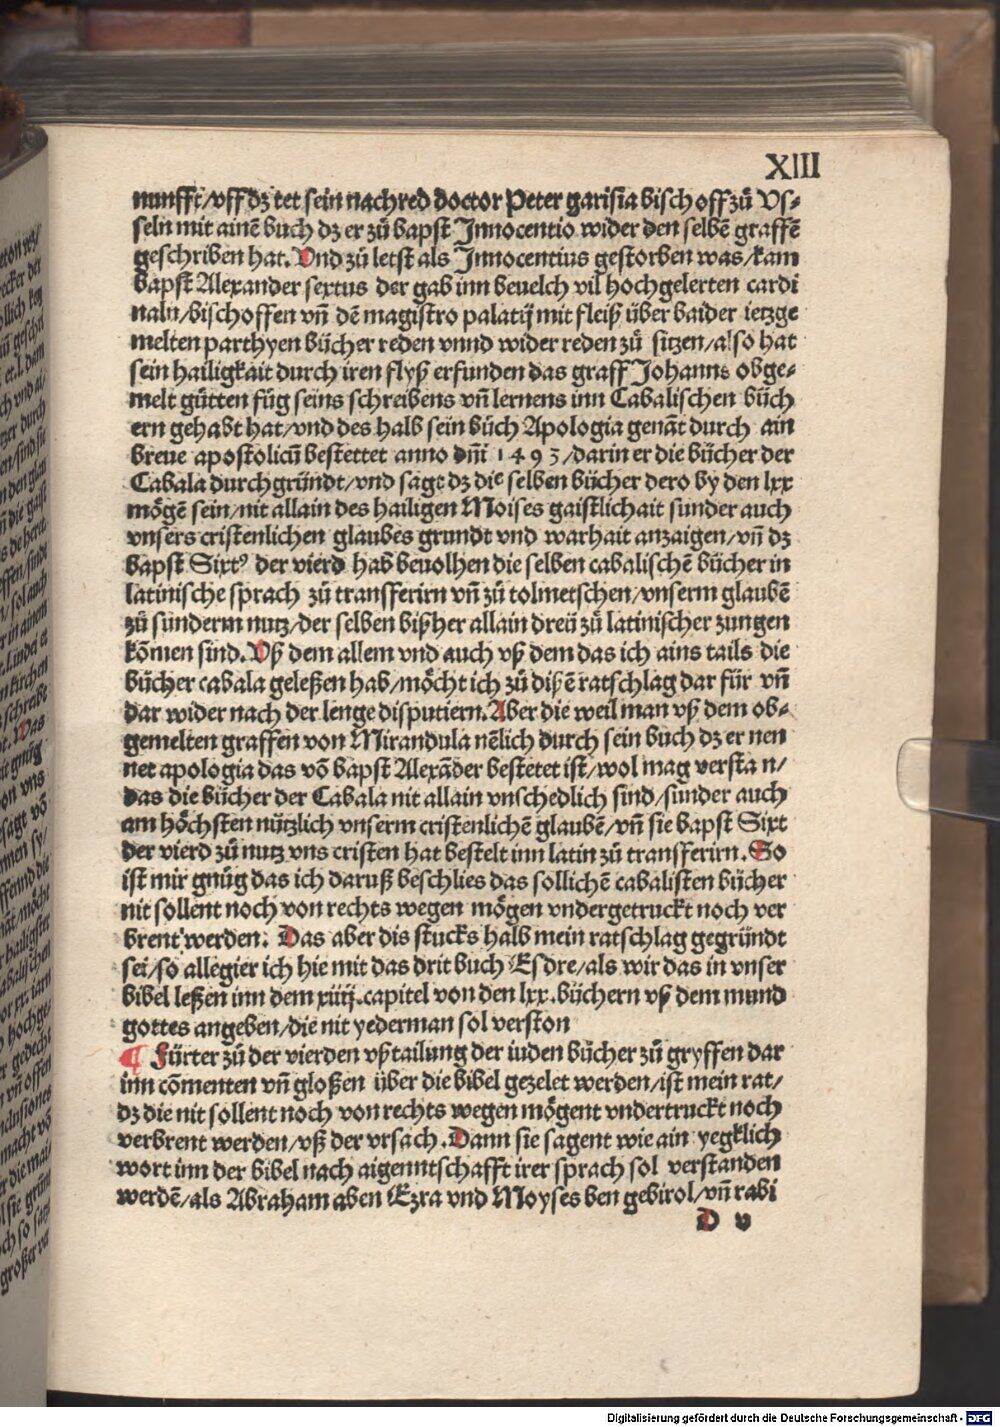 XIII
nunfft/vff dz tet sein nachred doctor Peter garisia bischoff zů Us⸗
seln mit ainē buch dz er zů bapst Innocentio wider den selbē graffē
geschriben hat. Und zů letst als Innocentius gestorben was/kam
bapst Alexander sextus der gab inn beuelch vil hochgelerten cardi
naln/bischoffen vñ dē magistro palatij mit fleiß über baider ietzge
melten parthyen bücher reden vnnd wider reden zů sitzen/also hat
sein hailigkait durch iren flyß erfunden das graff Johanns obge⸗
melt gůtten fůg seins schreibens vñ lernens inn Cabalischen büch
ern gehabt hat/vnd des halb sein bůch Apologia genāt durch ain
breue apostolicū bestettet anno dñi 1493/darin er die bücher der
Cabala durchgründt/vnd sagt dz die selben bücher dero by den lxx
mögē sein/nit allain des hailigen Moises gaistlichait sunder auch
vnsers cristenlichen glaubes grundt vnd warhait anzaigen/vñ dz
bapst Sixtꝰ der vierd hab beuolhen die selben cabalischē bücher in
latinische sprach zů transferirn vñ zů tolmetschen/vnserm glaubē
zů sunderm nutz/der selben bißher allain dreü zů latinischer zungen
kōmen sind. Uß dem allem vnd auch vß dem das ich ains tails die
bücher cabala geleßen hab/möcht ich zů dißē ratschlag dar für vñ
dar wider nach der lenge disputiern. Aber die weil man vß dem ob⸗
gemelten graffen von Mirandula nēlich durch sein buch dz er nen
net apologia das vō bapst Alexāder bestetet ist/wol mag verstan/
das die bücher der Cabala nit allain vnschedlich sind/sunder auch
am höchsten nützlich vnserm cristenlichē glaubē/vñ sie bapst Sixt
der vierd zů nutz vns cristen hat bestelt inn latin zů transferirn. So
ist mir gnůg das ich daruß beschlies das sollichē cabalisten bücher
nit sollent noch von rechts wegen mögen vndergetruckt noch ver
brent werden. Das aber dis stucks halb mein ratschlag gegründt
sei/so allegier ich hie mit das drit buch Esdre/als wir das in vnser
bibel leßen inn dem xiiij.capitel von den lxx.büchern vß dem mund
gottes angeben/die nit yederman sol verston
¶ Fürter zů der vierden vßtailung der iuden bücher zů gryffen dar
inn cōmenten vñ gloßen über die bibel gezelet werden/ist mein rat/
dz die nit sollent noch von rechts wegen mögent vndertruckt noch
verbrent werden/vß der vrsach. Dann sie sagent wie ain yegklich
wort inn der bibel nach aigenntschafft irer sprach sol verstanden
werdē/als Abraham aben Ezra vnd Moyses ben gebirol/vñ rabi
D v
Digitalisierung gefördert durch die Deutsche Forschungsgemeinschaft - DFG